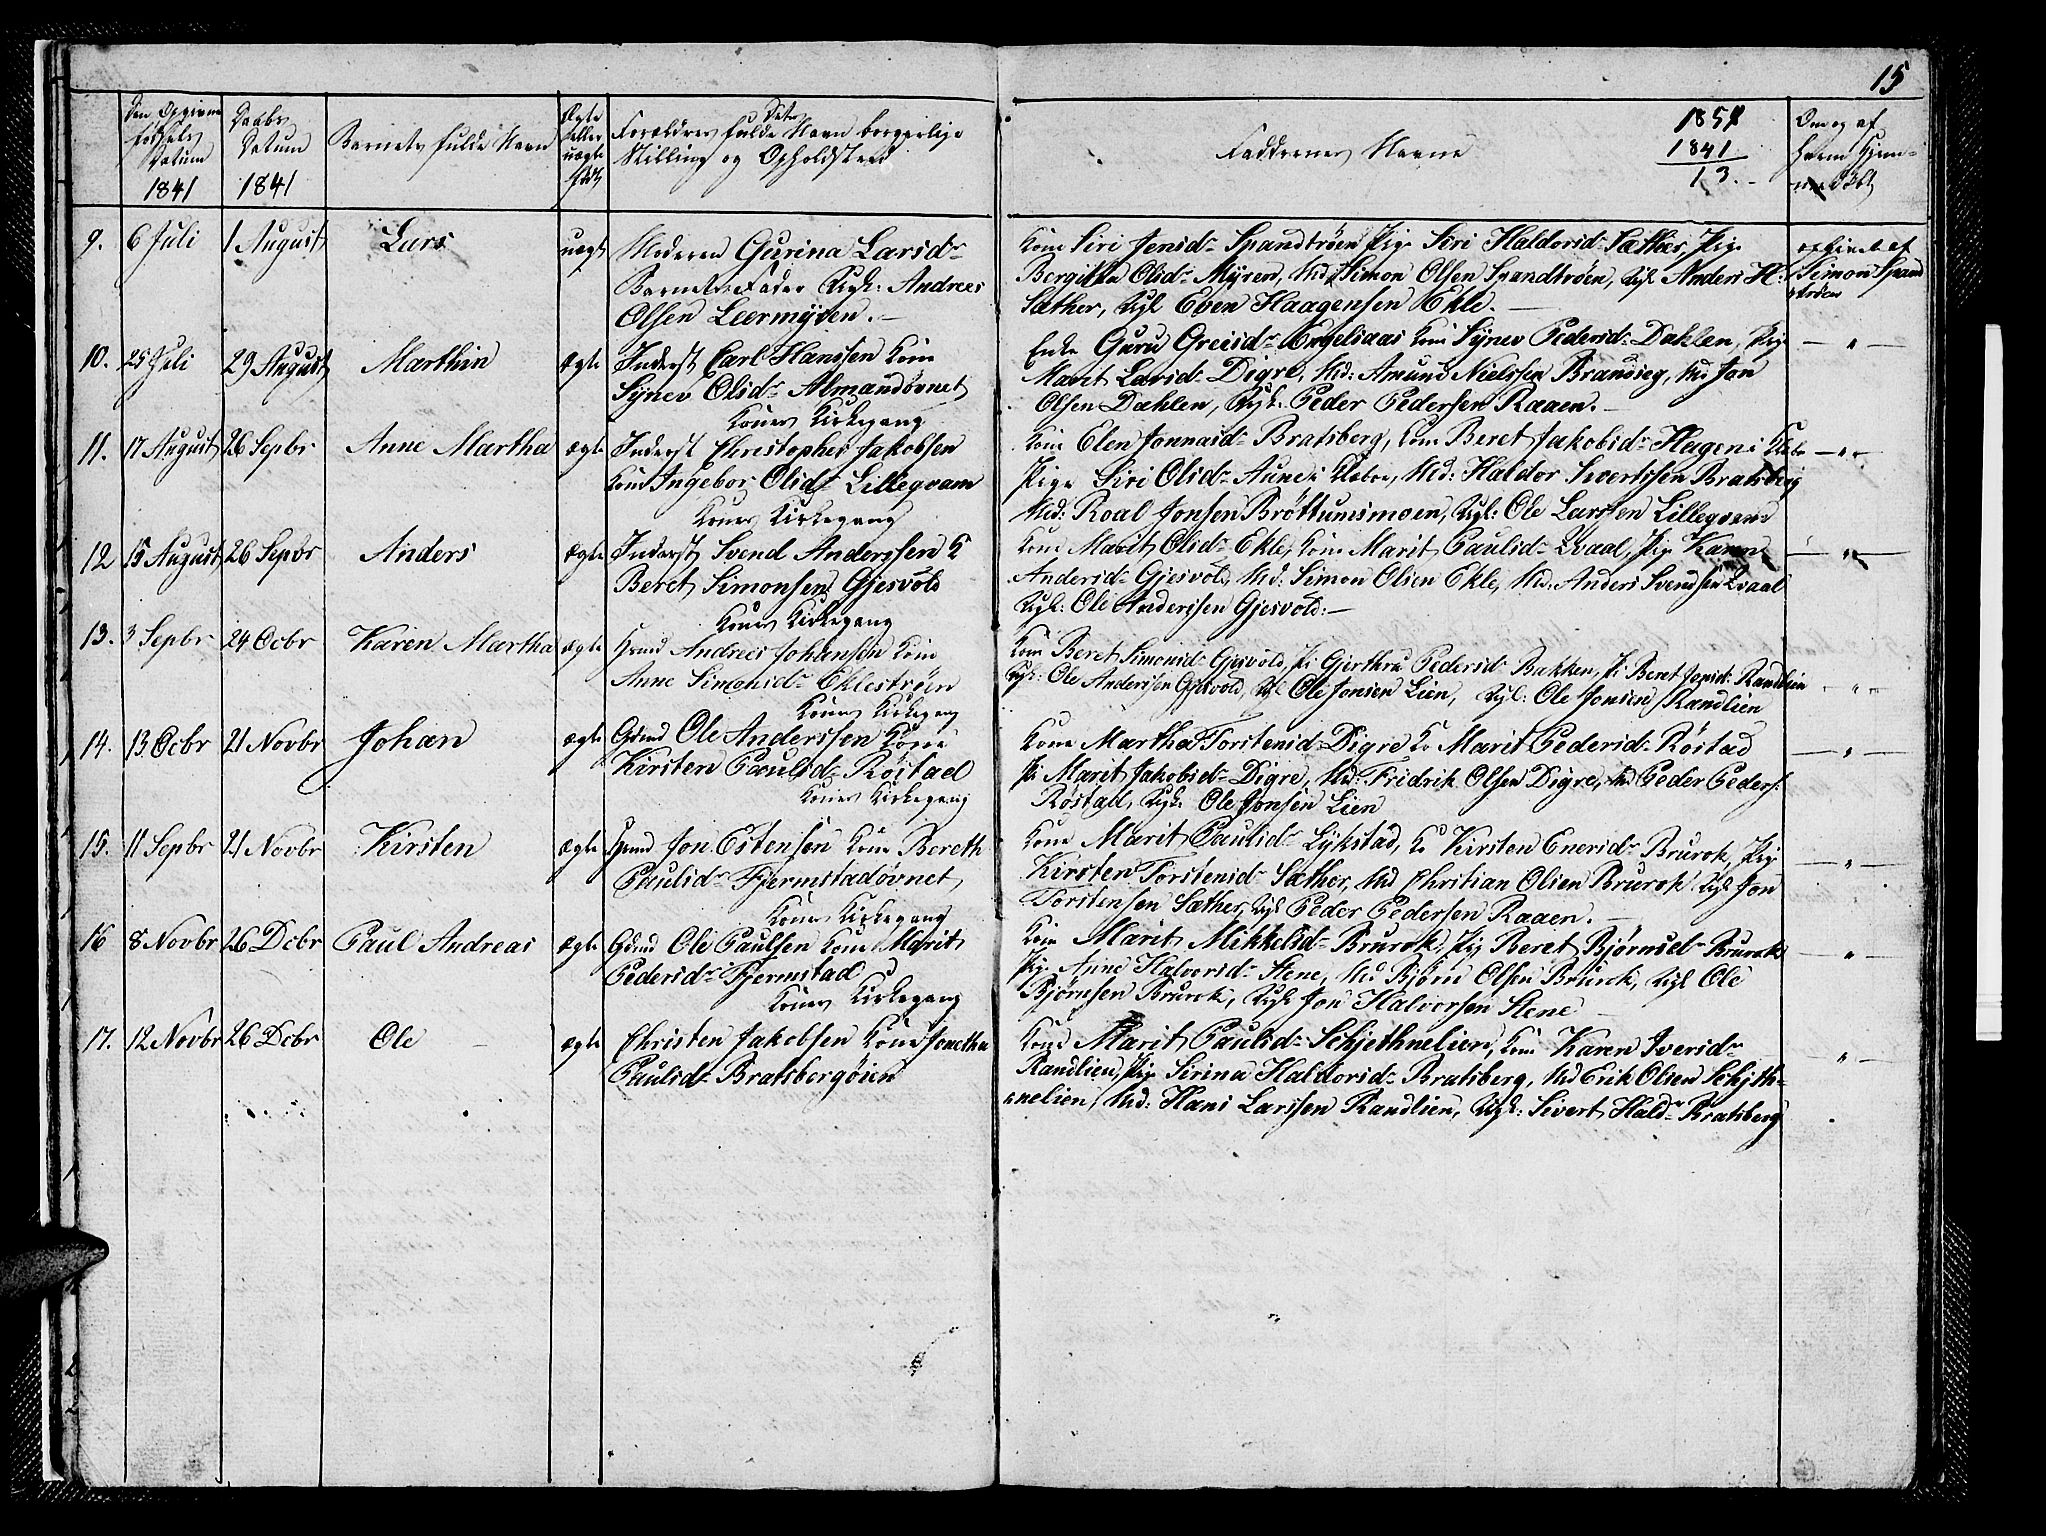 15
Den Opgivne Fødsels Datum 1841
Daabs Datum 1841
Barnets fulde Navn
Ægte eller uægte født
Forældres fulde Navn borgerlige Stilling og Opholdsted
Faddrenes Navne
1851
1841
13.
Om og af hvem Hjemmedøbt
9. 6 Juli 1 August Lars uægt
Moderen Gurina Larsd-
Barnets Fader Ugk: Andreas
Olsen Leermyren.-
Kone Siri Jensd- Spandtrøen Pige Siri Haldorsd- Sæther, Pige
Bergitha Olsd- Myren, Md Simon Olsen Spandtrøen, Ugk Anders H:
Sæther, Ugk Even Haagensen Ekle.-
Simon Spand
trøen
10. 25 Juli 29 August Marthin ægte
Inderst Carl Hanssen Kone
Synev Olsd- Almandøvnet
Konens Kirkegang
Enke Guru Greisd- Engelsaas Kone Synev Pedersd- Dahlen, Pig
Marit Larsd- Digre, Md: Amund Nielssen Brandseg, Md Jon
Olsen Dahlen, Ugk: Peder Pedersen Raaen.-
— " —
11. 17 August 26 Sepbr Anne Martha ægte
Inderst Christopher Jakobsen
Kone Ingebor Olsd- Lillegvam
Konens Kirkegang
Kone Elen Jonnasd- Bratsberg, Kone Beret Jakobsd- Hagen i Klæbo
Pige Siri Olsd- Aune i Klæboe, Md: Haldor Sivertssen Bratsberg
Md: Roal Jonsen Brøttumsmoen, Ugk: Ole Larssen Lillegvam
— " —
12 15 August 26 Sepbr Anders ægte
Inderst Svend Anderssen K
Beret Simonsen Gjesvold
Konens Kirkegang
Kone Marit Olsd- Ekle, Kone Marit Paulsd- Qvaal, Pige Karen
Andersd- Gjesvold, Md: Simon Olsen Ekle, Md: Anders Svendsen Qvaal
Ugk: Ole Anderssen Gjesvold:-
— " —
13. 3 Sepbr 24 Ocbr Karen Martha ægte
Hmd Andreas Johansen Kone
Anne Simonsd- Eklestrøen
Konens Kirkegang
Kone Beret Simonsd- Gjesvold, Pi Gjerthru Pedersd- Bakken, Pi Beret Jonsd- Randlien
Ugk: Ole Anderssen Gjesvold, Ugk Ole Jonsen Lien, Ugk: Ole Jonsen Randlien
— " —
14. 13 Ocbr 21 Novbr Johan ægte
Gdmd Ole Anderssen Kone
Kirsten Paulsd- Røstad
Konens Kirkegang
Kone Martha Torstensd- Digre Ko Marit Pedersd- Røstad
Pi Marit Jakobsd- Digre, Md: Fridrik Olsen Digre, Md Peder Peders:
Røstad, Ugk: Ole Jonsen Lien
— " —
15. 11 Sepbr 21 Novbr Kirsten ægte
Hmd Jon Estensen Kone Bereth
Paulsd- Fjermstadøvnet
Konens Kirkegang
Kone Marit Paulsd- Lykstad, Ko Kirsten Enersd- Brurok, Pig
Kirsten Torstensd- Sæther, Md Christian Olsen Brurok Ugk Jon
Torstensen Sæther, Ugk Peder Pedersen Raaen.-
— " —
16 8 Novbr 26 Dcbr Paul Andreas ægte
Gdmd Ole Paulsen Kone Marit
Pedersd- Fjermstad
Konens Kirkegang
Kone Marit Mikkelsd- Brurok, Pig Beret Bjørnsd- Brurok
Pig Anne Halvorsd- Stene, Md Bjørn Olsen Brurok, Ugk Ole
Bjørnsen Brurok, Ugk Jon Halvorsen Stene
— " —
17. 12 Novbr 26 Dcbr Ole ægte
Christen Jakobsen Kone Jonetha
Paulsd- Bratsbergøien
Kone Marit Paulsd- Schjethnelien, Kone Karen Iversd-
Randlien, Pig Sirina Haldorsd- Bratsberg, Md Erik Olsen Schjeth-
nelien, Md: Hans Larssen Randlien, Ugk: Sivert Hald- Bratsberg
— " —